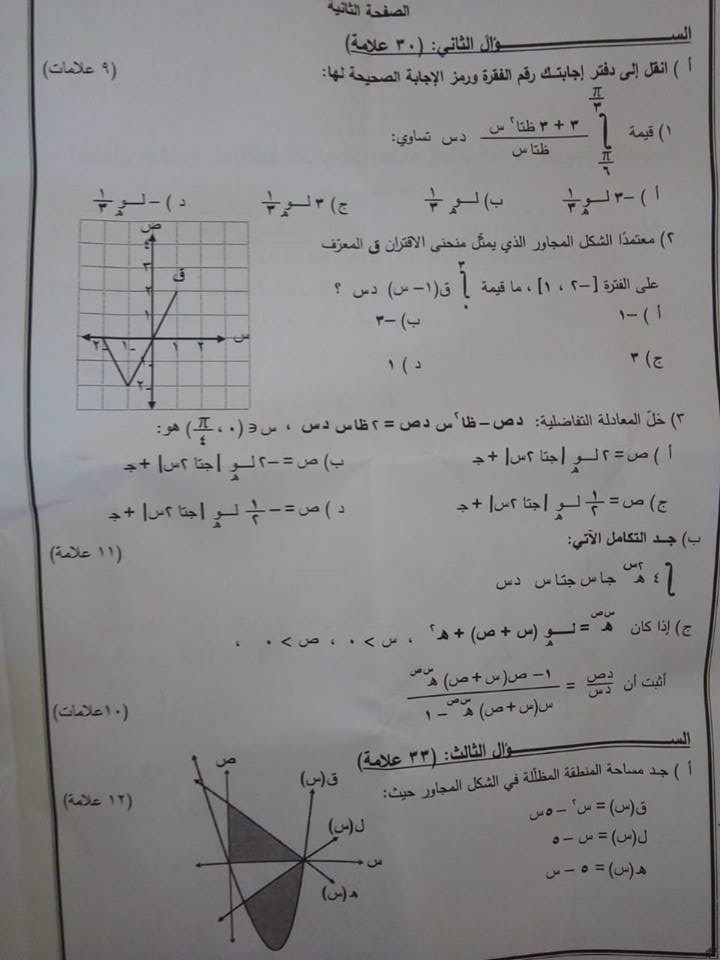 الصفحة الثانية
الســـــــؤال الثاني: (٣٠ علامة)
أ ) انقل إلى دفتر إجابتك رقم الفقرة ورمز الإجابة الصحيحة لها: (٩ علامات)
١) قيمة ∫ (من π/٦ إلى π/٣) (٣ + ٣ ظتا٢ س)/(ظتا س) دس تساوي:
أ ) −٣ لــوهـ ١/٣ ب) لــوهـ ١/٣ ج) ٣ لــوهـ ١/٣ د ) − لــوهـ ١/٣
٢) معتمدًا الشكل المجاور الذي يمثّل منحنى الاقتران ق المعرّف
على الفترة [−٢ ، ١]، ما قيمة ∫ (من ٠ إلى ٣) ق(١− س) دس ؟
أ ) −١ ب) −٣
ج) ٣ د ) ١
ص
٤
٣
٢
١
ق
س
−٢ −١ ١ ٢
−٢
٣) حلّ المعادلة التفاضلية: دص − ظا٢س دص = ٢ ظاس دس ، س ∈ (٠ ، π/٤) هو:
أ ) ص = ٢ لــوهـ |جتا ٢س| + جـ ب) ص = −٢ لــوهـ |جتا ٢س| + جـ
ج) ص = ١/٢ لــوهـ |جتا ٢س| + جـ د ) ص = − ١/٢ لــوهـ |جتا ٢س| + جـ
ب) جـد التكامل الآتي: (١١ علامة)
∫ ٤ هـ٢س جاس جتاس دس
ج) إذا كان هـس ص = لــوهـ (س + ص) + هـ٢ ، س > ٠ ، ص > ٠ ،
أثبت أن دص/دس = (١− ص(س + ص) هـس ص)/(س(س + ص) هـس ص −١) (١٠علامات)
الســـــــؤال الثالث: (٣٣ علامة)
أ ) جـد مساحة المنطقة المظلّلة في الشكل المجاور حيث: (١٢ علامة)
ق(س) = س٢ − ٥س
ل(س) = س − ٥
هـ(س) = ٥ − س
ص
ق(س)
ل(س)
س
هـ(س)